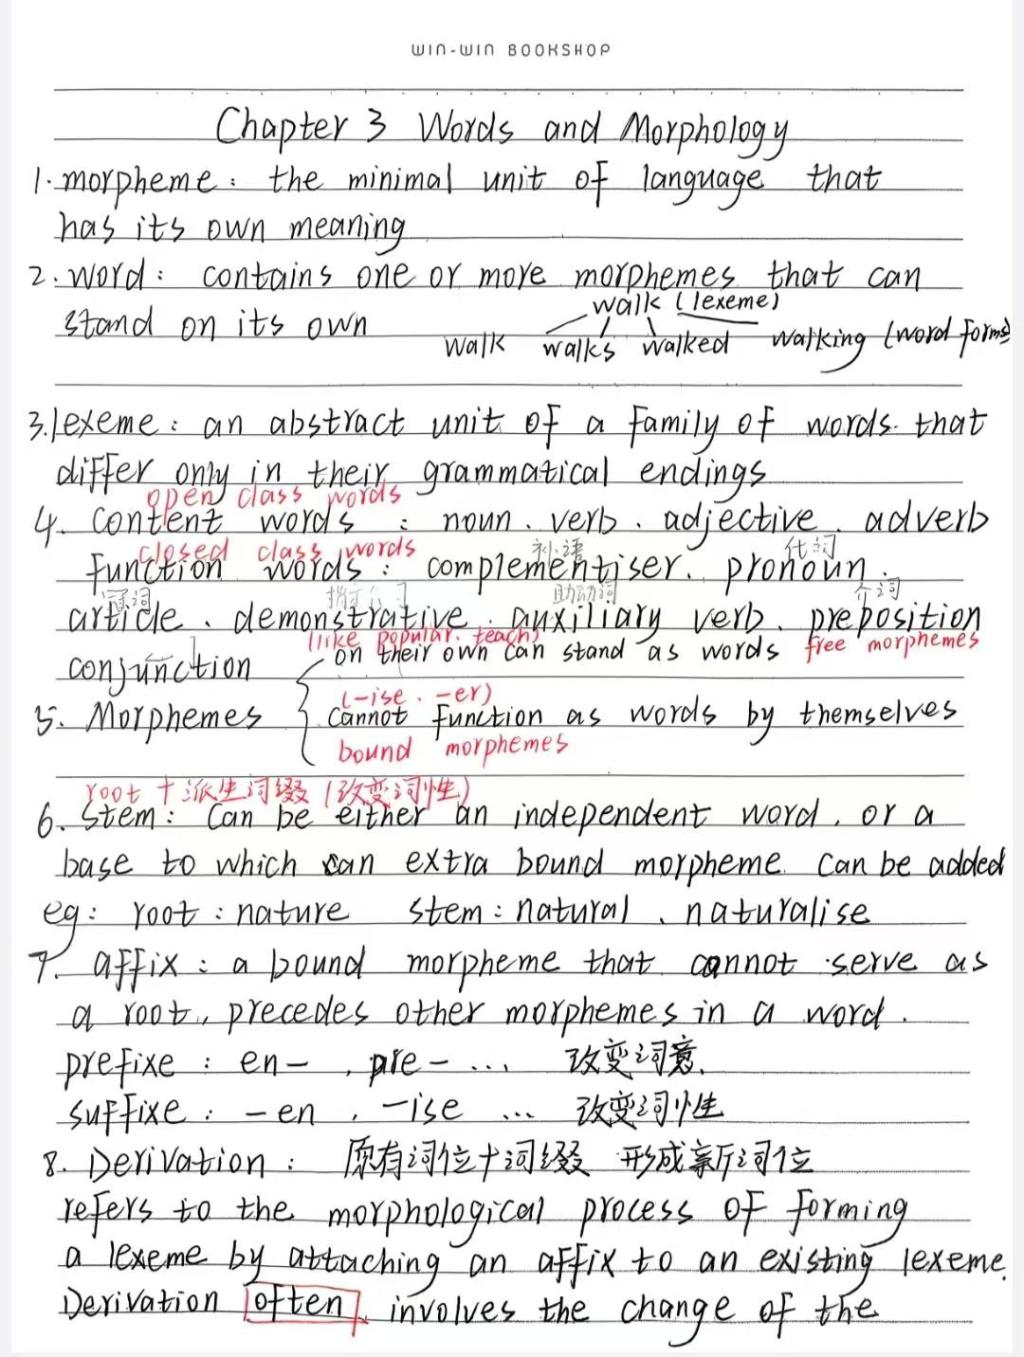 WIN-WIN BOOKSHOP
Chapter 3 Words and Morphology
1. morpheme: the minimal unit of language that
has its own meaning
2. word: contains one or more morphemes that can
walk (lexeme)
stand on its own
walk walks walked walking (word forms)
3. lexeme: an abstract unit of a family of words that
differ only in their grammatical endings
open class words
4. content words: noun. verb. adjective. adverb
closed class words 补语 代词
function words: complementiser. pronoun.
冠词 助动词 介词
article. demonstrative. auxiliary verb. preposition
(like popular. teach)
on their own can stand as words free morphemes
conjunction
(-ise. -er)
5. Morphemes cannot function as words by themselves
bound morphemes
root + 派生词缀 (改变词性)
6. stem: can be either an independent word, or a
base to which can extra bound morpheme can be added
eg: root: nature stem: natural、naturalise
7. affix: a bound morpheme that cannot serve as
a root, precedes other morphemes in a word.
prefixe: en-, pre-... 改变词意.
suffixe: -en, -ise ... 改变词性
8. Derivation: 原有词位+词缀 形成新词位
refers to the morphological process of forming
a lexeme by attaching an affix to an existing lexeme.
Derivation often, involves the change of the